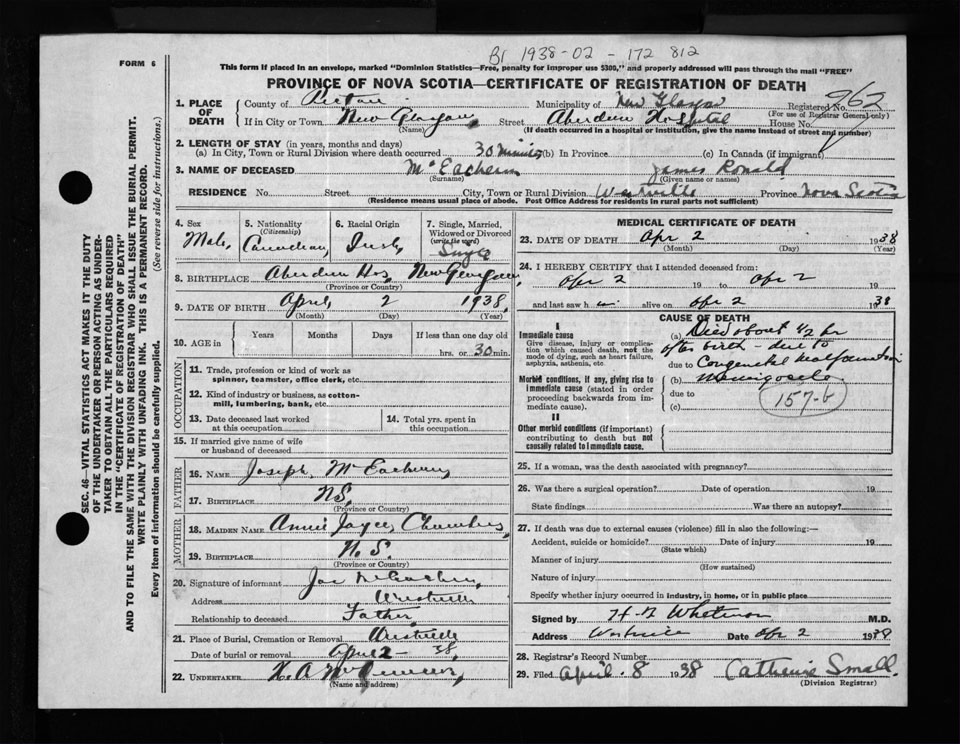 B1 1938-02-172 812
FORM 6
This form if placed in an envelope, marked "Dominion Statistics—Free, penalty for improper use $300," and properly addressed will pass through the mail "FREE"
PROVINCE OF NOVA SCOTIA—CERTIFICATE OF REGISTRATION OF DEATH
SEC. 46—VITAL STATISTICS ACT MAKES IT THE DUTY
OF THE UNDERTAKER OR PERSON ACTING AS UNDER-
TAKER TO OBTAIN ALL THE PARTICULARS REQUIRED
IN THE "CERTIFICATE OF REGISTRATION OF DEATH"
AND TO FILE THE SAME WITH THE DIVISION REGISTRAR WHO SHALL ISSUE THE BURIAL PERMIT.
WRITE PLAINLY WITH UNFADING INK. THIS IS A PERMANENT RECORD.
Every item of information should be carefully supplied. (See reverse side for instructions.)
1. PLACE OF DEATH County of Pictou Municipality of New Glasgow Registered No. 962
(For use of Registrar General only)
If in City or Town New Glasgow Street Aberdeen Hospital House No.
(Name) (If death occurred in a hospital or institution, give the name instead of street and number)
2. LENGTH OF STAY (in years, months and days)
(a) In City, Town or Rural Division where death occurred 30 minutes (b) In Province (c) In Canada (if immigrant)
3. NAME OF DECEASED McEachern James Ronald
(Surname) (Given name or names)
RESIDENCE No. Street City, Town or Rural Division Westville Province Nova Scotia
(Residence means usual place of abode. Post Office Address for residents in rural parts not sufficient)
4. Sex 5. Nationality (Citizenship) 6. Racial Origin 7. Single, Married, Widowed or Divorced (write the word)
Male Canadian Irish Single
8. BIRTHPLACE Aberdeen Hos, New Glasgow
(Province or Country)
9. DATE OF BIRTH April 2 1938
(Month) (Day) (Year)
10. AGE in Years Months Days If less than one day old
hrs. or 30 min.
OCCUPATION
11. Trade, profession or kind of work as
spinner, teamster, office clerk, etc.
12. Kind of industry or business, as cotton-
mill, lumbering, bank, etc.
13. Date deceased last worked at this occupation 14. Total yrs. spent in this occupation
15. If married give name of wife
or husband of deceased
FATHER
16. NAME Joseph McEachern
17. BIRTHPLACE N.S.
(Province or Country)
MOTHER
18. MAIDEN NAME Annie Chambers
19. BIRTHPLACE N.S.
(Province or Country)
20. Signature of informant Joe McEachern
Address Westville
Relationship to deceased Father
21. Place of Burial, Cremation or Removal Westville
Date of burial or removal April 2 - 38
22. UNDERTAKER
(Name and address)
MEDICAL CERTIFICATE OF DEATH
23. DATE OF DEATH Apr 2 1938
(Month) (Day) (Year)
24. I HEREBY CERTIFY that I attended deceased from:
Apr 2 19 to Apr 2
and last saw h alive on Apr 2 1938
CAUSE OF DEATH
I
Immediate cause
Give disease, injury or complica-
tion which caused death, not the
mode of dying, such as heart failure,
asphyxia, asthenia, etc
(a) Died about 1/2 hr
after birth - due to
due to Congenital malformation
Morbid conditions, if any, giving rise to
immediate cause (stated in order
proceeding backwards from im-
mediate cause).
(b)
due to 157-b
(c)
II
Other morbid conditions (if important)
contributing to death but not
causally related to immediate cause.
25. If a woman, was the death associated with pregnancy?
26. Was there a surgical operation? Date of operation 19
State findings Was there an autopsy?
27. If death was due to external causes (violence) fill in also the following:—
Accident, suicide or homicide? Date of injury 19
(State which)
Manner of injury
(How sustained)
Nature of injury
Specify whether injury occurred in industry, in home, or in public place
Signed by M.D.
Address Westville Date Apr 2 1938
28. Registrar's Record Number
29. Filed April 8 1938 Catherine Small
(Division Registrar)